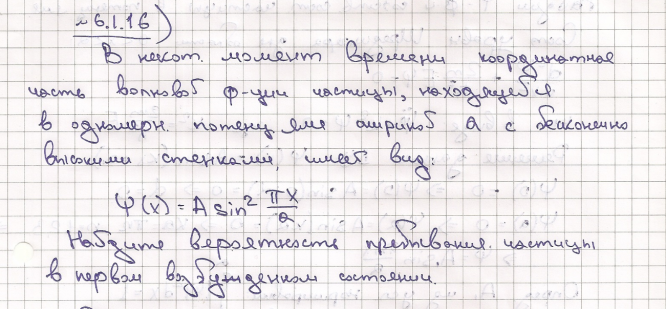 №6.1.16)
В некот. момент времени координатная
часть волновой ф-ции частицы, находящейся
в одномерн. потенц. яме шириной a с бесконечно
высокими стенками, имеет вид:
Ψ(x) = A sin² πx/a
Найдите вероятность пребывания частицы
в первом возбужденном состоянии.